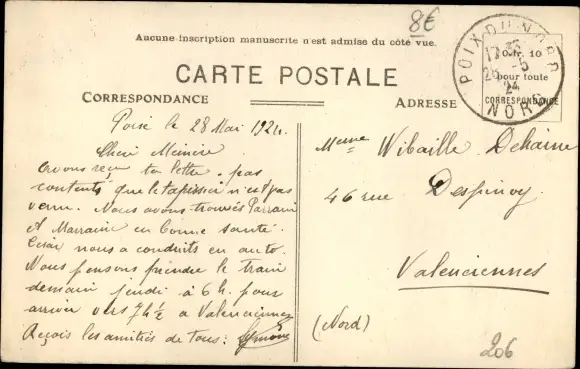 8€
Aucune inscription manuscrite n'est admise du côté vue.
CARTE POSTALE
CORRESPONDANCE
ADRESSE
POIX-DU-NORD
26-5
24
NORD
0 fr. 10
pour toute
CORRESPONDANCE
Poix le 28 Mai 1924.
Avons reçu ta lettre. pas
contents que le tapissier n'est pas
venu. Nous avons trouvés Parrain
et Marraine en bonne santé.
César nous a conduits en auto.
Nous pensons prendre le train
demain jeudi à 6h. pour
arriver vers 7h ½ a Valenciennes
Reçois les amitiés de tous:
Mme Wibaille Dehaine
46 rue Despinoy
Valenciennes
(Nord)
206